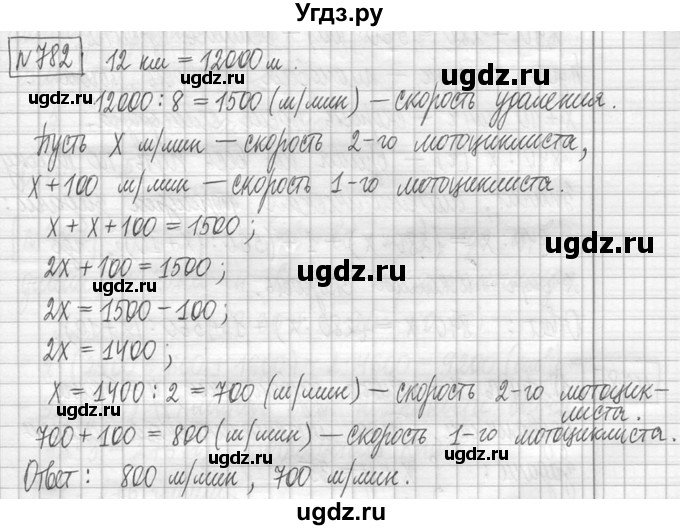 Угдз.ру
№782 12 км = 12000 м.
ugdz.ru ugdz.ru
12000 : 8 = 1500 (м/мин) — скорость удаления.
ugdz.ru
Пусть x м/мин — скорость 2-го мотоциклиста,
ugdz.ru
x + 100 м/мин — скорость 1-го мотоциклиста.
x + x + 100 = 1500;
ugdz.ru
2x + 100 = 1500;
ugdz.ru
2x = 1500 - 100;
2x = 1400;
ugdz.ru
x = 1400 : 2 = 700 (м/мин) — скорость 2-го мотоцик-
ugdz.ru
листа.
700 + 100 = 800 (м/мин) — скорость 1-го мотоциклиста.
ugdz.ru
Ответ: 800 м/мин, 700 м/мин.
ugdz.ru